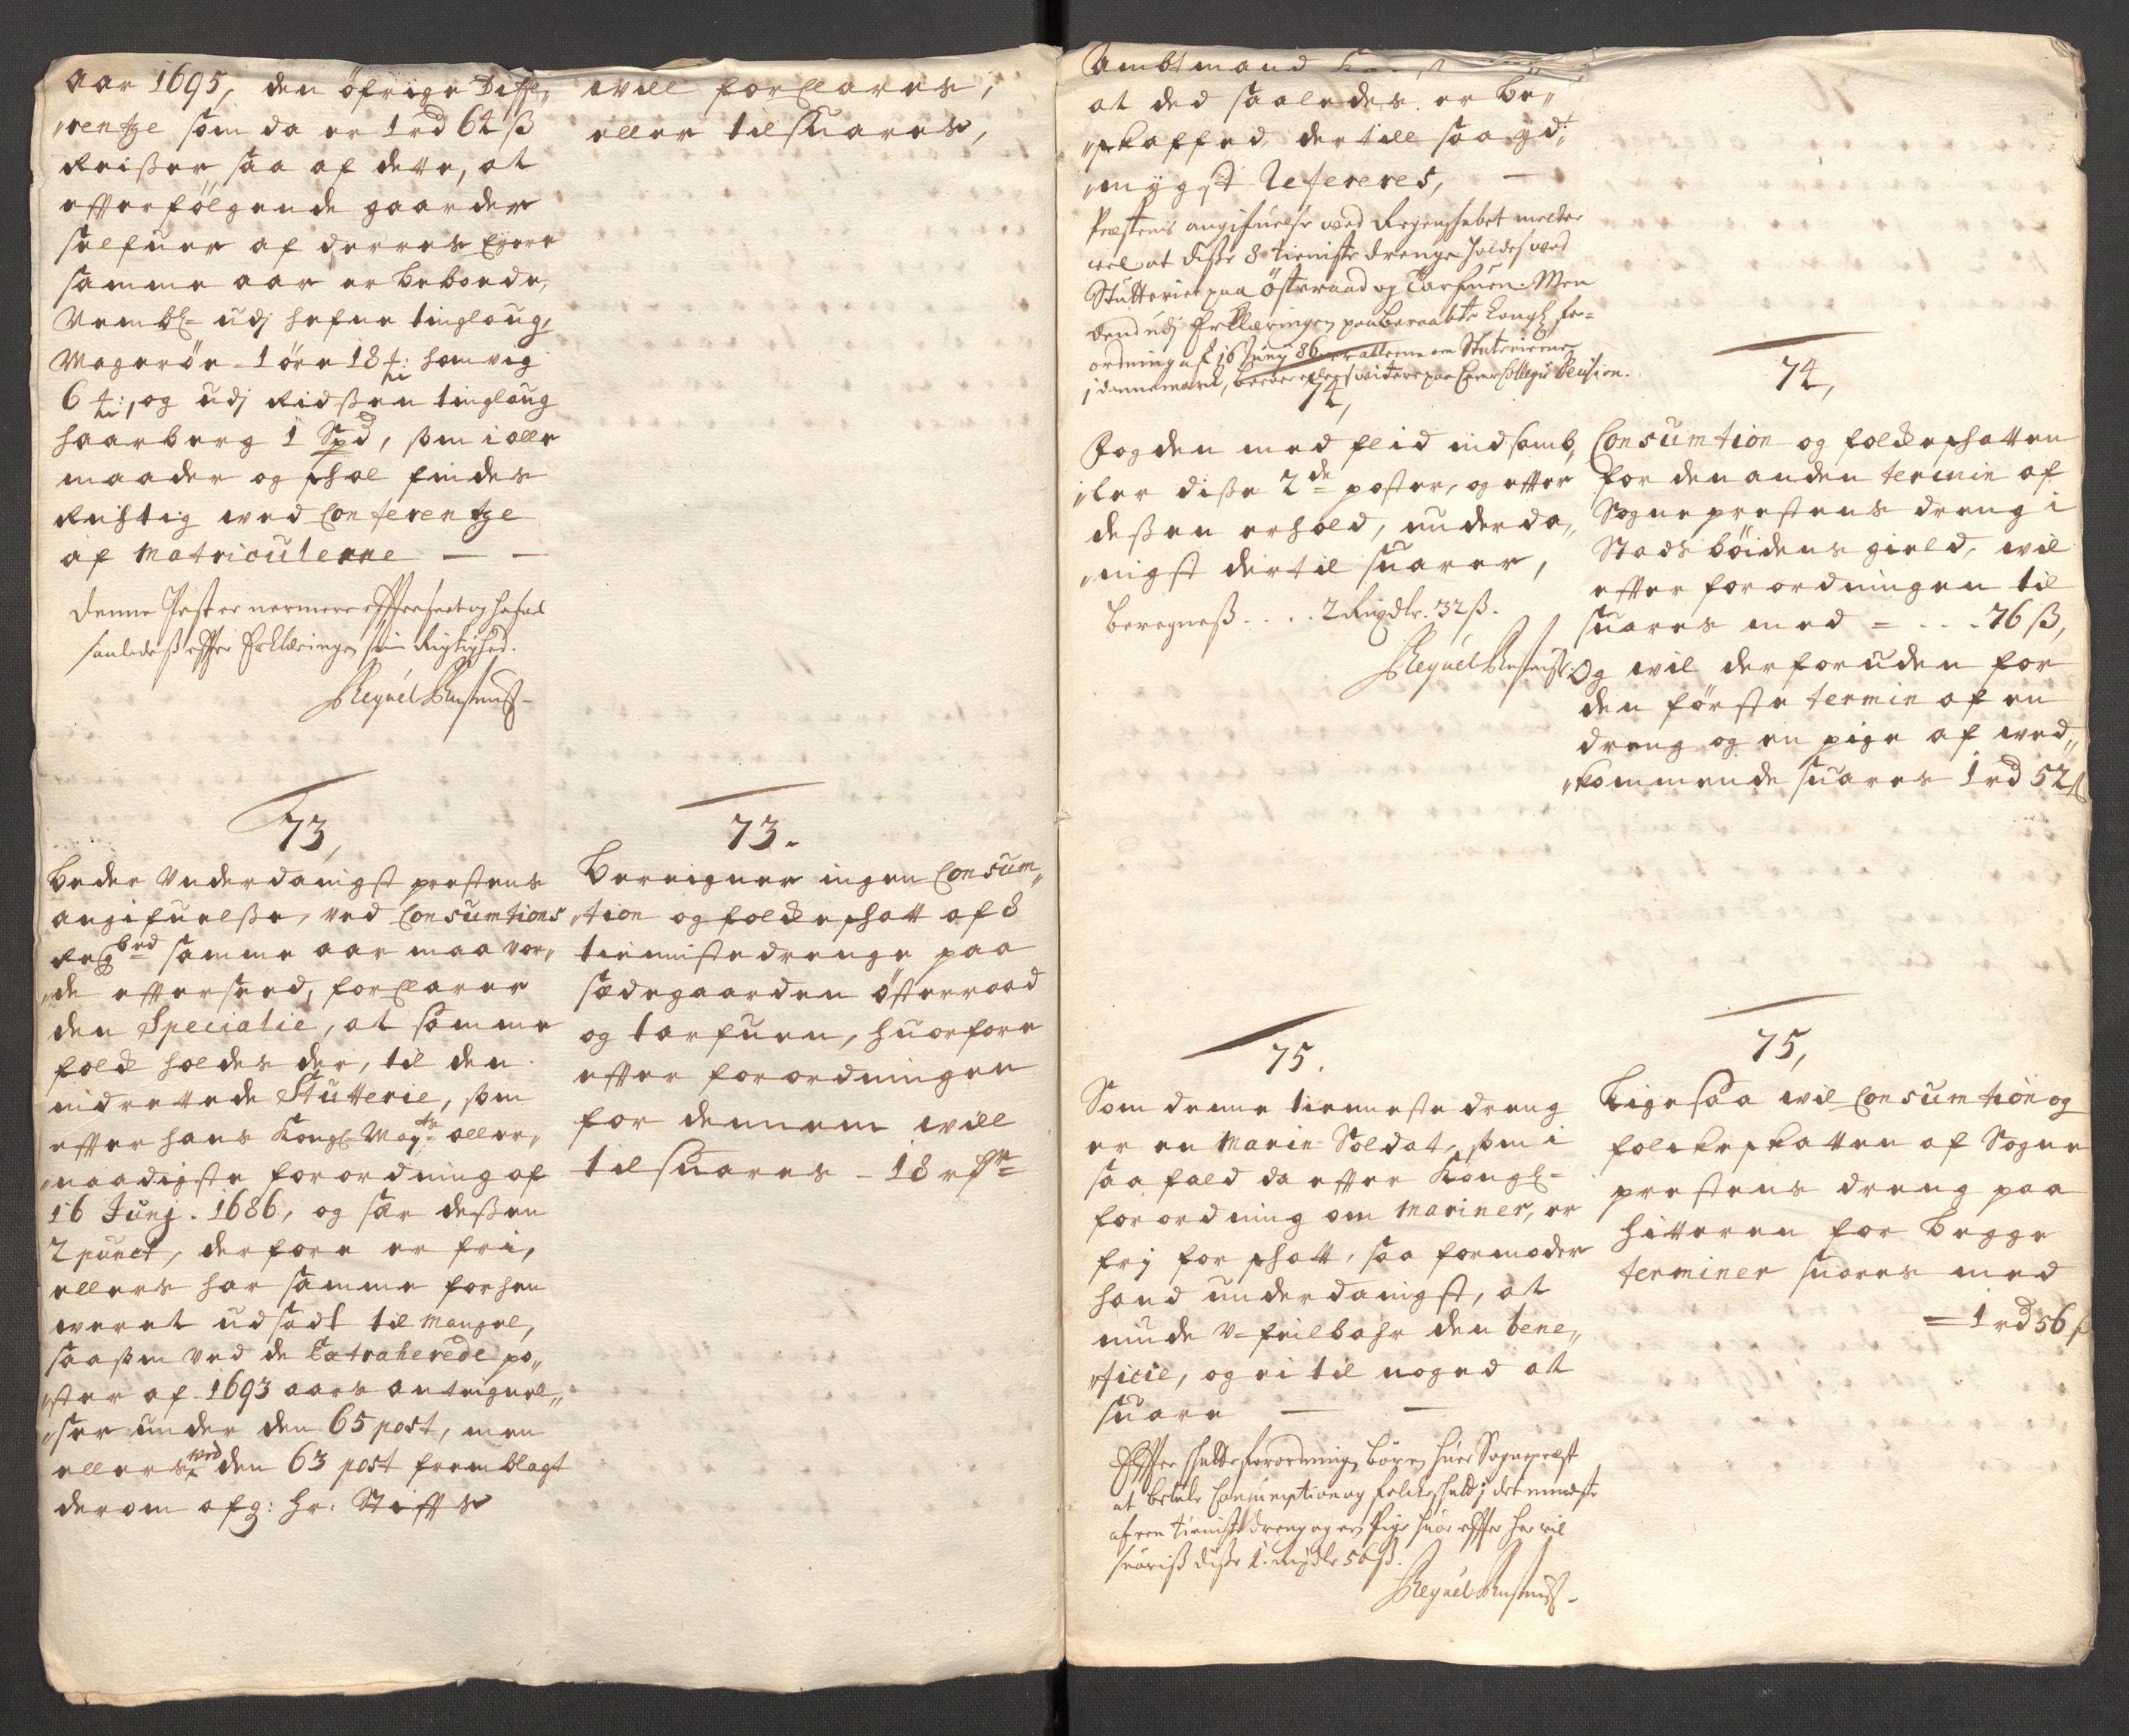 Aar 1695, den öfrige Diffe„
„rentze som da er 1 rd 64 ß
Reißer saa af dette, at
efterfölgende gaarder
selfuer af derres Eyere
samme aar er beboede,
Nembl= udj hefne tinglaug,
Magerör - 1 öre 18 hemvig
6 og udj Ridßen tinglaug
haarberg 1 Spd, som i alle
maader og skal findes
Rigtig wed Conferentze
af Matriculerne — —
Denne Post er nermere effterseet og hafuel
saaledeß efter Erklæringen sin Rigtighed.
will forklares,
eller tilsuares,
73,
beder Underdanigst prestens
angifuelße, ved Consumtions
samme aar maa vor„
„de efterseed, forklarer
den Specialie, at samme
folck holdes der, til den
indrettede Stutterie, som
efter hans Kongl= May:ts aller„
„naadigste forordning af
16 Junj. 1686, og før deßen
2 punct, derfore er fri,
ellers har samme forhen
weret udsadt til Mangel,
saasom ved de Extraherede po„
„ster af 1693 aars antegnel„
„ser under den 65 post, men
ellers ved den 63 post fremblagt
derom afg: hr: Stiffts
73.
Bereigner ingen Consum„
„tion og folckeschatt af 8
tienniste drenge paa
sædegaarden österraad
og tarfuen, huorfore
efter forordningen
for dennem will
tilsuares - 18 rdr
Ambtmand
at ded saaledes er be„
„skaffed, dertill saa yd„
„mygst Refereres, —
Prestens angifuelse wed Regenskabet melder
vel at diße 8 tieniste drenge holdes wed
Stutteriet paa Österaad og Tarfuen. Men
dend udj Erklæringen paaberaabte Kongl. for=
ordning af 16 Junÿ 86 er allerne om Stuterierne
j dannemark, beroer ellers widere paa Camer Collegii Decision.
74,
Fogden med flid indsamb„
„ler diße 2de poster, og efter
deßen erhold, underda„
„nigst dertil suarer,
Beregneß . . . . 2 Rixdlr. 32 ß.
74,
Consumtion og folckeschatten
for den anden termin af
Sogneprestens dreng i
Stadsböidens gield, wil
efter forordningen til
suares med = . . . 76 ß,
Og wil derforuden for
den förste termin af en
dreng og en pige af wed„
„kommende suares 1 rd 52 ß
75.
Som denne tienneste dreng
er en Marin-Soldat, som i
saa fald da efter Kongl=
forordning om Mariner, er
frj for schatt, saa formoder
hand underdanigst, at
niude U-feilbahr den bene„
„ficie, og ei til noged at
suare — —
Effter skatteforordningen bör en huer Sogneprest
at betale Consumption og folckeskatt j det mindste
af een tieniste dreng og en Pige huor effter her vil
suariß diße 1. rixdlr 56 ß.
75,
Ligesaa wil Consumtion og
folckeskatten af Sogne
prestens dreng paa
hitteren for begge
terminer suares med
= 1 rd 56 ß